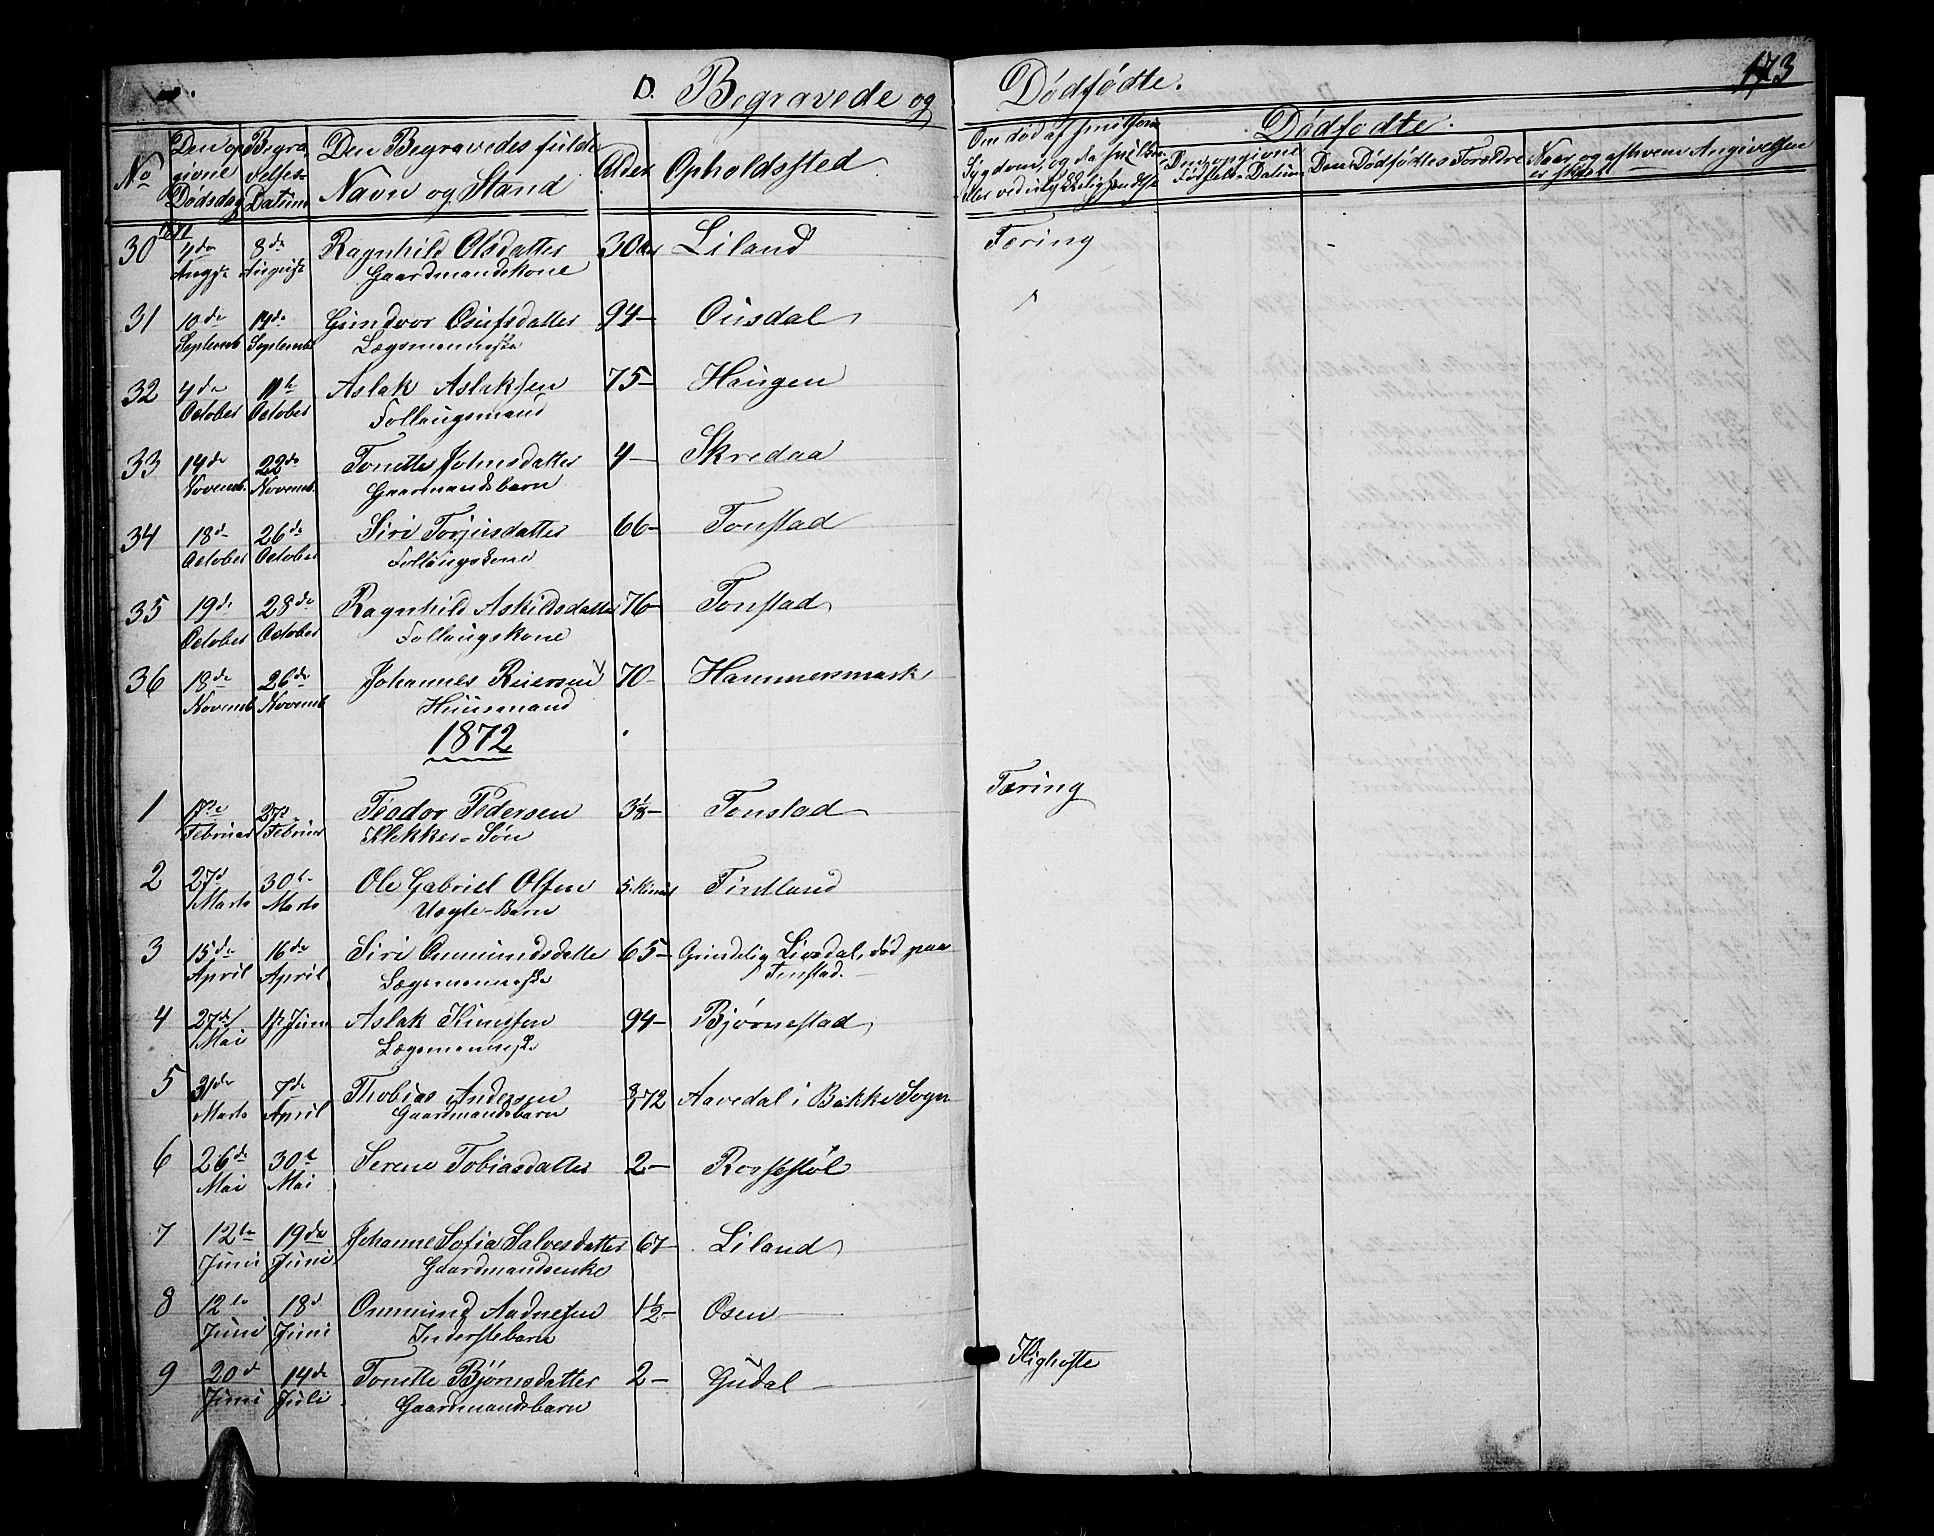 173
D. Begravede og Dødfødte.
No
Den opgivne Dødsdag
Begravelses-Datum
Den Begravedes fulde Navn og Stand
Alder
Opholdssted
Om død af smitsom Sygdom, og da hvilken, eller ved ulykkelig Hændelse
Dødfødte.
Den opgivne Fødsels-Datum
Den Dødfødtes Forældre
Naar og af hvem Angivelsen er skeet
1871
30 4de August 8de August Ragnhild Olsdatter 30 Aar Liland Tæring
Gaardmandskone
31 10de Septemb 14de Septemb Gundvor Osufsdatter 94 — Ousdal
Lægsmenneske
32 4de October 11te October Aslak Aslaksen 75 — Haugen
Follaugsmand
33 14de Novemb. 22de Novemb. Tonette Johnsdatter 4 — Skredaa
Gaardmandsbarn
34 18de October 26de October Siri Torjusdatter 66 — Tonstad
Follaugskone
35 19de October 28de October Ragnhild Askildsdatter 76 — Tonstad
Follaugskone
36 18de Novemb 26de Novemb Johannes Reiersen 70 — Hammersmark
Huusmand
1872
1 17de Februar 27de Februar Teodor Pedersen 3 1/8 — Tonstad Tæring
Klokker-Søn
2 27de Marts 30te Marts Ole Gabriel Olsen Tintland
Uægte-Barn
3 15de April 16de April Siri Ommundsdatter 65 — Grindelig Livsdal, død paa Tonstad.
Lægsmenneske
4 27de Mai 1ste Juni Aslak Knudsen 94 — Bjørnestad
Lægsmenneske
5 31de Marts 7de April Thobias Andersen 8/3 72 Aavedal i Bakke Sogn
Gaardmandsbarn
6 26de Mai 30te Mai Serene Tobiasdatter 2 — Rossestøl
7 12te Juni 19de Juni Johanne Sofia Salvesdatter 67 — Liland
Gaardmandsenke
8 12te Juni 18de Juni Ommund Aadnesen 1 1/2 — Osen
Inderstebarn
9 20de Juni 14de Juli Tonette Bjørnsdatter 2 — Gudal Kighoste
Gaardmandsbarn